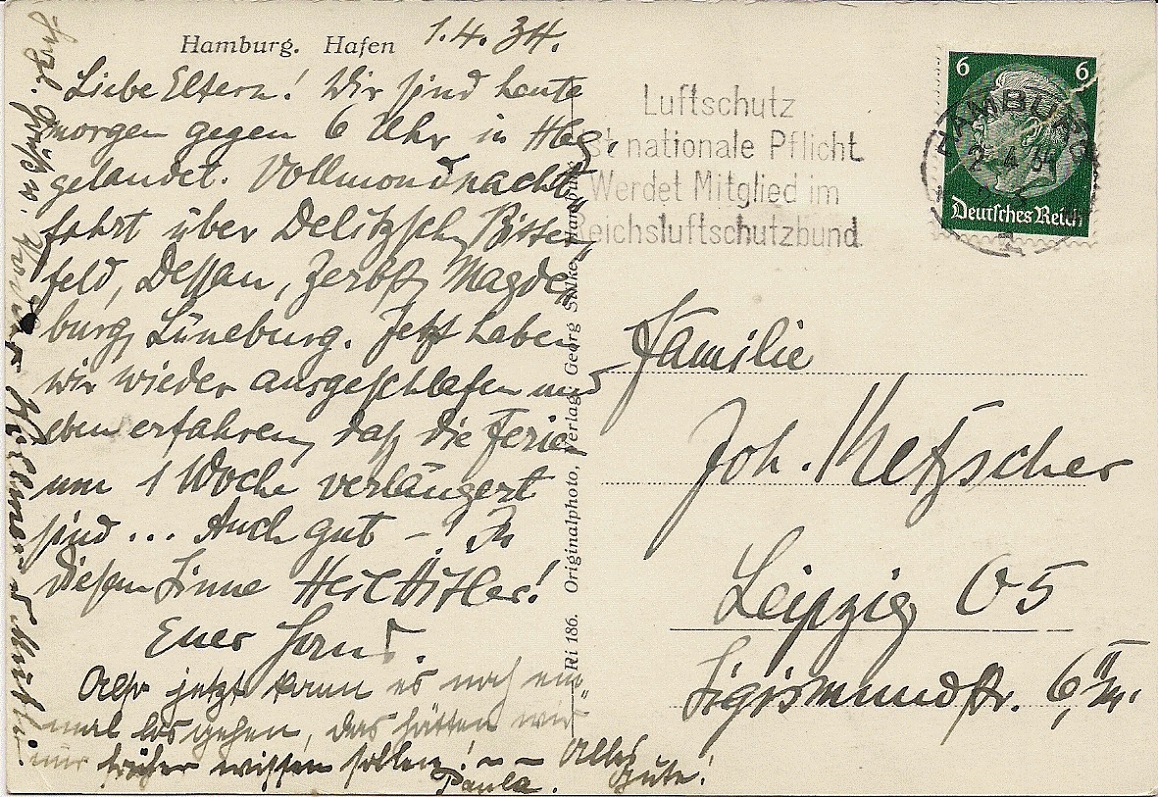 Hamburg. Hafen 1.4.34.
Liebe Eltern! Wir sind heute
morgen gegen 6 Uhr in Hbg.
gelandet. Vollmondnacht
fahrt über Delitzsch, Bitter
feld, Dessau, Zerbst, Magde
burg, Lüneburg. Jetzt haben
wir wieder ausgeschlafen und
eben erfahren, daß die Ferien
um 1 Woche verlängert
sind... Auch gut – ! In
diesem Sinne Heil Hitler!
Euer
Also jetzt kann es noch ein„
mal losgehen, das hätten wir
nur früher wissen sollen! – –
Paula.
Alles
Gute!
Herzl. Grüße
Ri 186. Originalphoto, Verlag: Georg Stilke, Hamburg
Luftschutz
ist nationale Pflicht
Werdet Mitglied im
Reichsluftschutzbund
6 6
Deutsches Reich
HAMBURG
2.4.34
1
Familie
Joh. Metzscher
Leipzig O5
Sigismundstr. 6, II m.